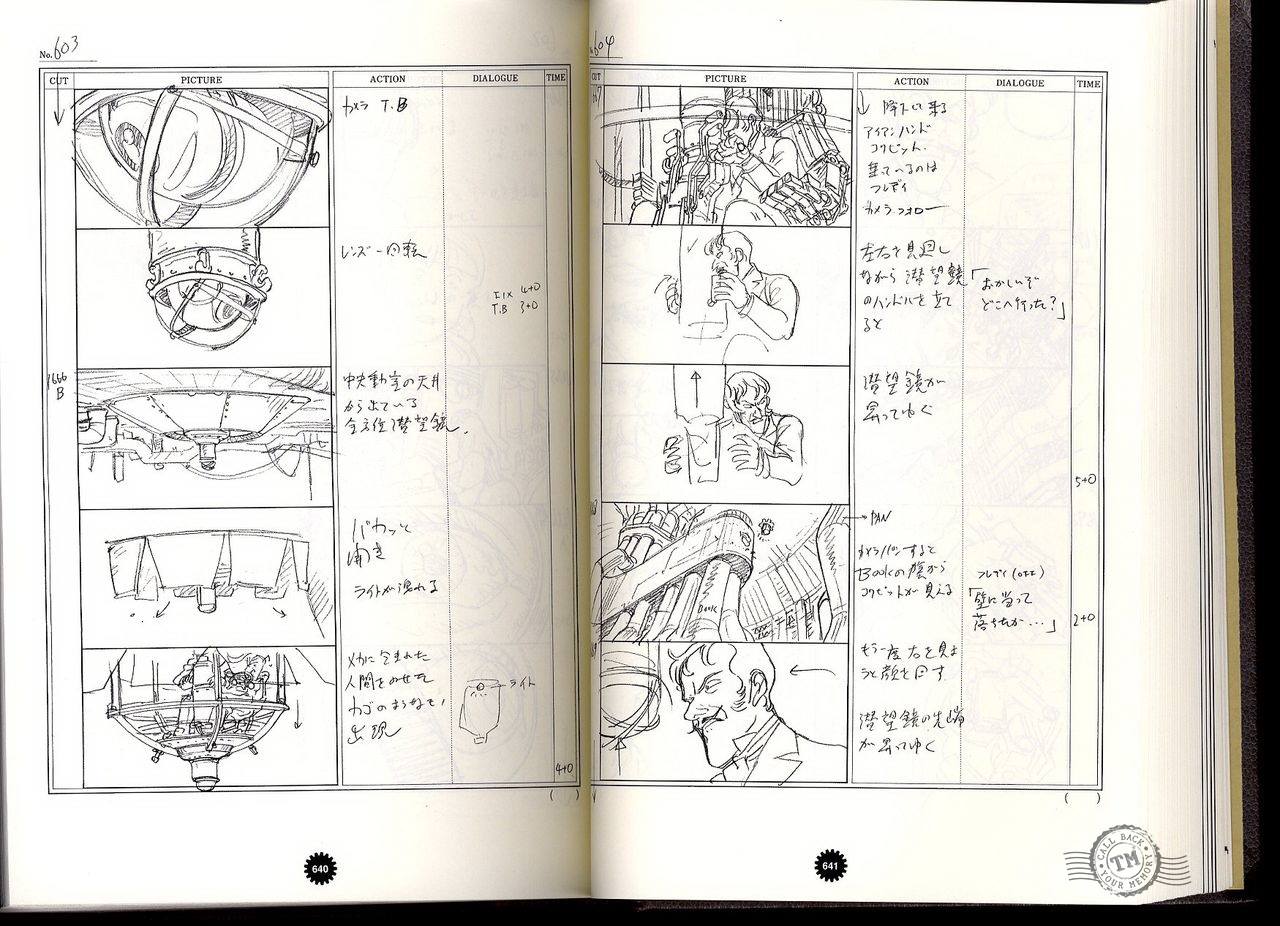 No. 603
CUT PICTURE ACTION DIALOGUE TIME
カメラ T.B
レンズ一回転
T.B 3+0
1666
B
中央動室の天井
から出ている
全方位潜望鏡.
パカッと
開き
ライトが洩れる
メカに含まれた
人間をのせた
カゴのようなモノ
出現
ライト
4+0
( )
640
604
CUT PICTURE ACTION DIALOGUE TIME
降下して来る
アイアンハンド
コクピット.
乗っているのは
フレディ
カメラフォロー
左右を見廻し
ながら潜望鏡
のハンドルを立て
ると
「おかしいぞ
どこへ行った?」
潜望鏡が
昇ってゆく
5+0
PAN
カメラパンすると
Bookの陰から
コクピットが見える
BOOK
フレディ(OFF)
「壁に当って
落ちたか…」
2+0
もう一度右を見よ
うと顔を回す
潜望鏡の先端
が昇ってゆく
( )
641
CALL BACK
TM
YOUR MEMORY